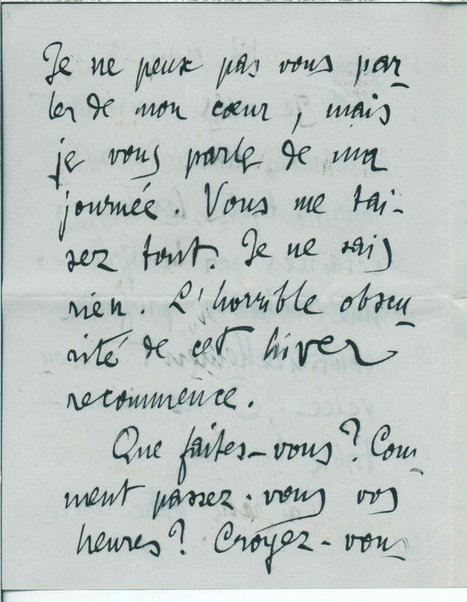 Je ne peux pas vous par
ler de mon cœur, mais
je vous parle de ma
journée. Vous me tai-
sez tout. Je ne sais
rien. L'horrible obscu
rité de cet hiver
recommence.
Que faites-vous? Com
ment passez-vous vos
heures? Croyez-vous